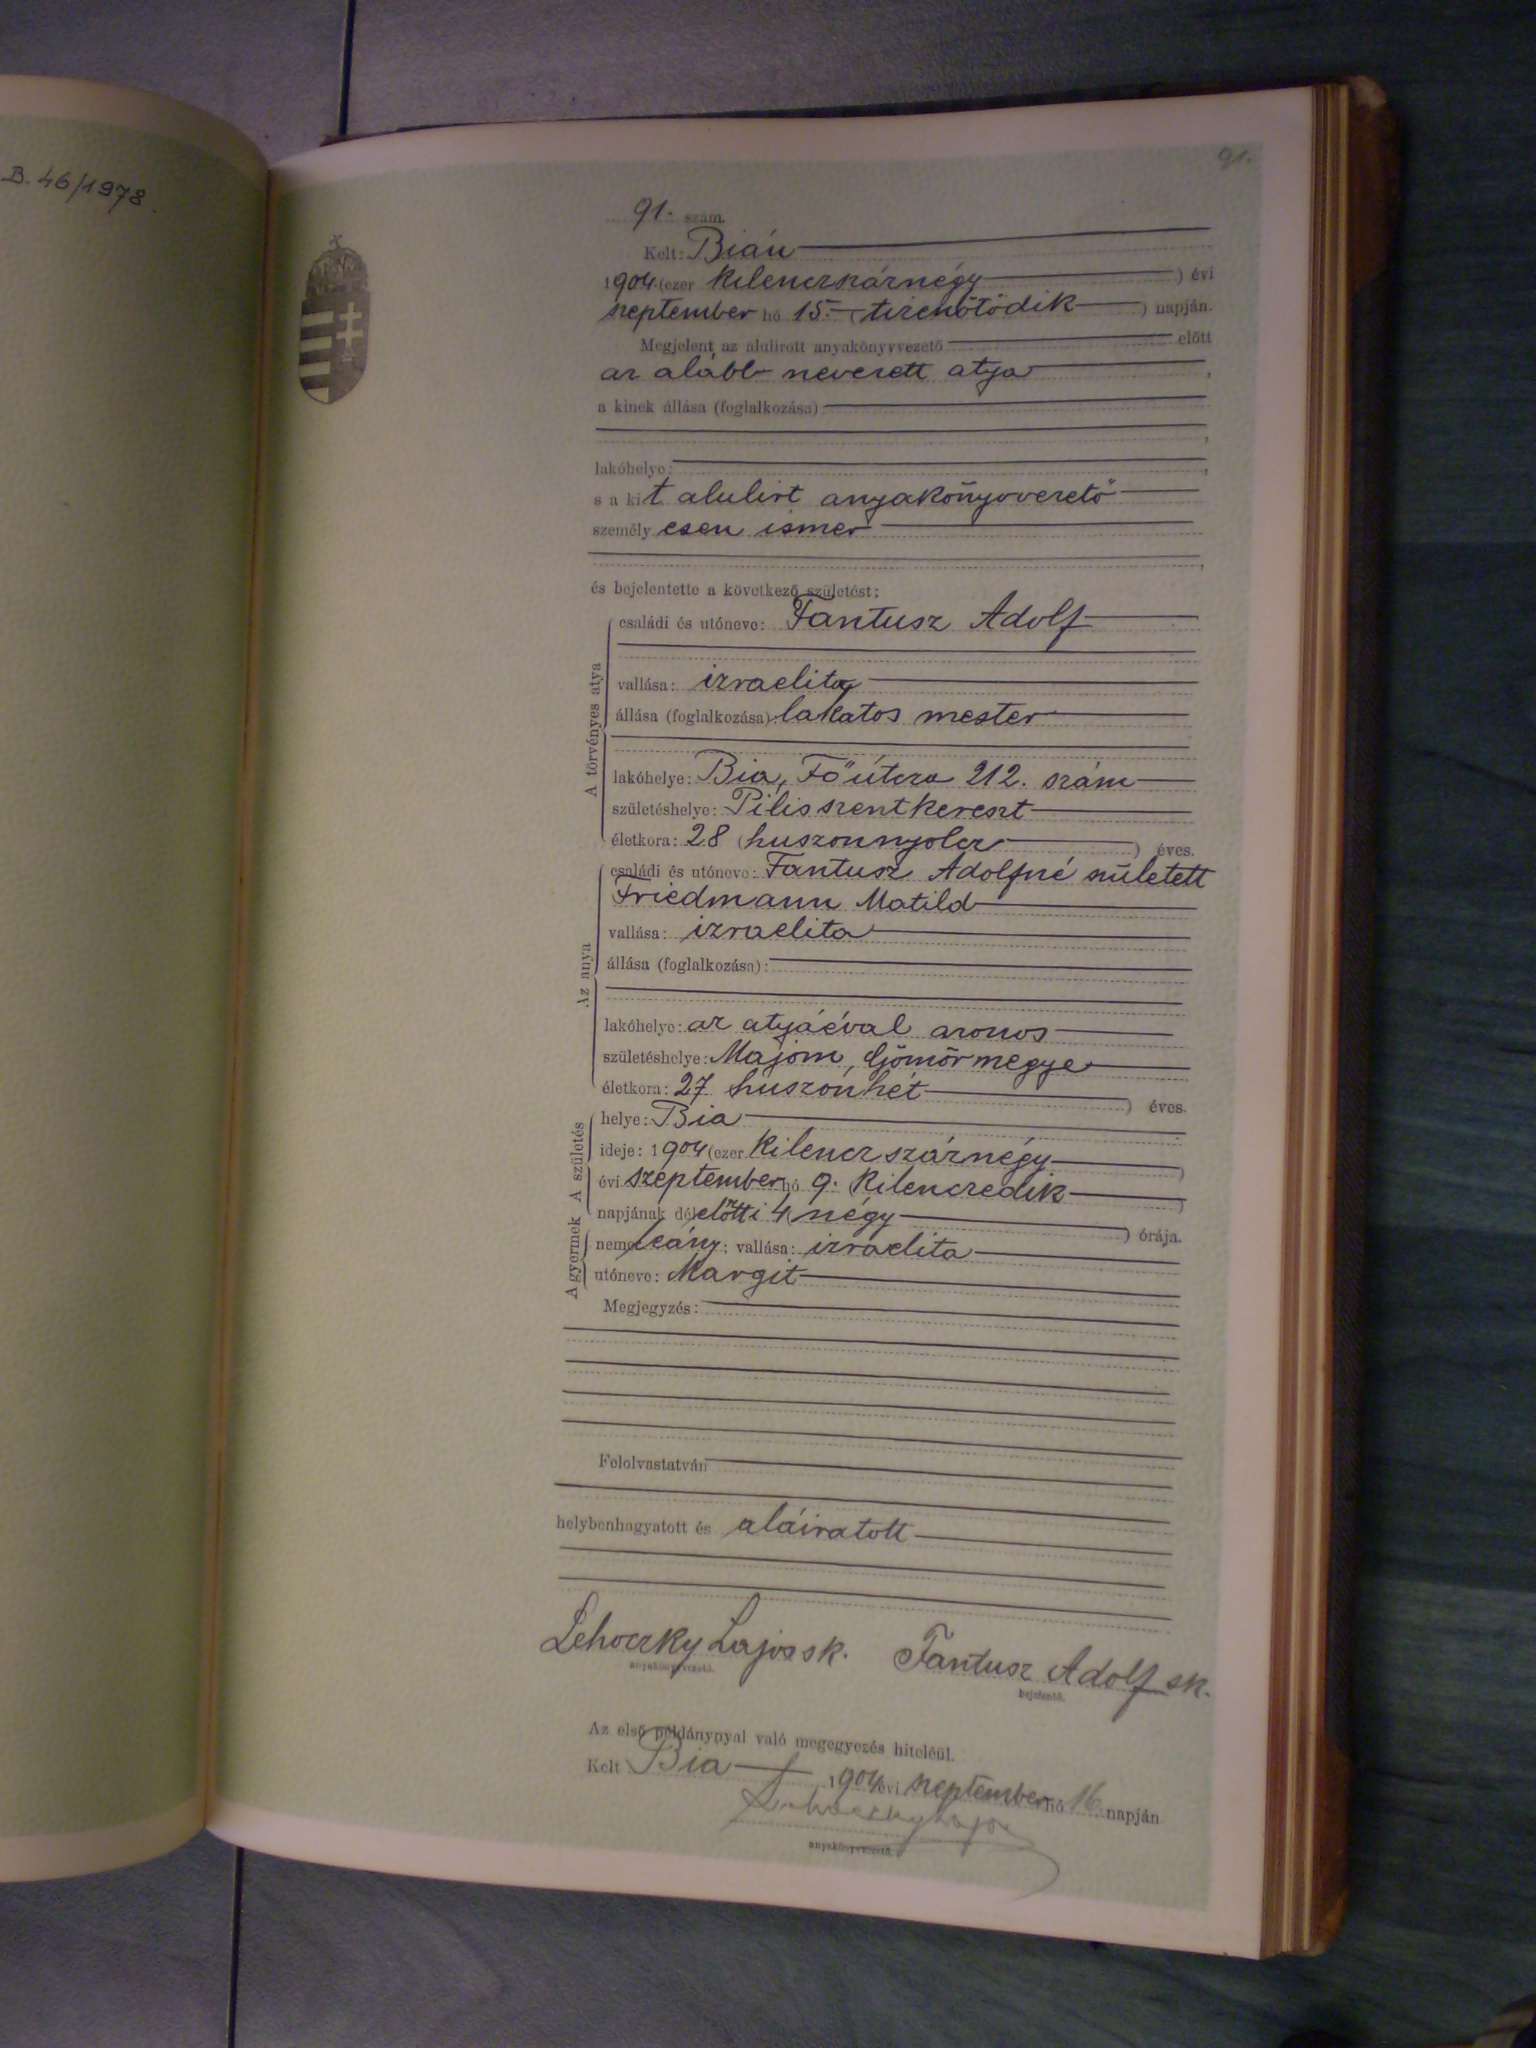 B. 46/1978.
91.
91. szám.
Kelt: Bián
1904 (ezer kilenczszáznégy) évi
szeptember hó 15. (tizenötödik) napján.
Megjelent az alulirott anyakönyvvezető előtt
az alább nevezett atya,
a kinek állása (foglalkozása):
lakóhelye:
s a kit alulirt anyakönyvvezető
személyesen ismer
és bejelentette a következő születést:
A törvényes atya
családi és utóneve: Fantusz Adolf
vallása: izraelita
állása (foglalkozása): lakatos mester
lakóhelye: Bia, Fő útcza 212. szám
születéshelye: Pilisszentkereszt
életkora: 28 (huszonnyolcz) éves.
Az anya
családi és utóneve: Fantusz Adolfné született
Friedmann Matild
vallása: izraelita
állása (foglalkozása):
lakóhelye: az atyáéval azonos
születéshelye: Majom, Gömörmegye
életkora: 27 huszonhét) éves.
A születés
helye: Bia
ideje: 1904 (ezer kilencz száznégy)
évi szeptember hó 9. kilenczedik)
napjának délelőtti 4 (négy) órája.
A gyermek
neme: leány; vallása: izraelita
utóneve: Margit
Megjegyzés:
Felolvastatván
helybenhagyatott és aláiratott
Lehoczky Lajos sk. Fantusz Adolf sk.
anyakönyvvezető. bejelentő.
Az első példánynyal való megegyezés hiteléül.
Kelt Bia 1904 évi szeptember hó 16 napján
Lehoczky Lajos
anyakönyvvezető.